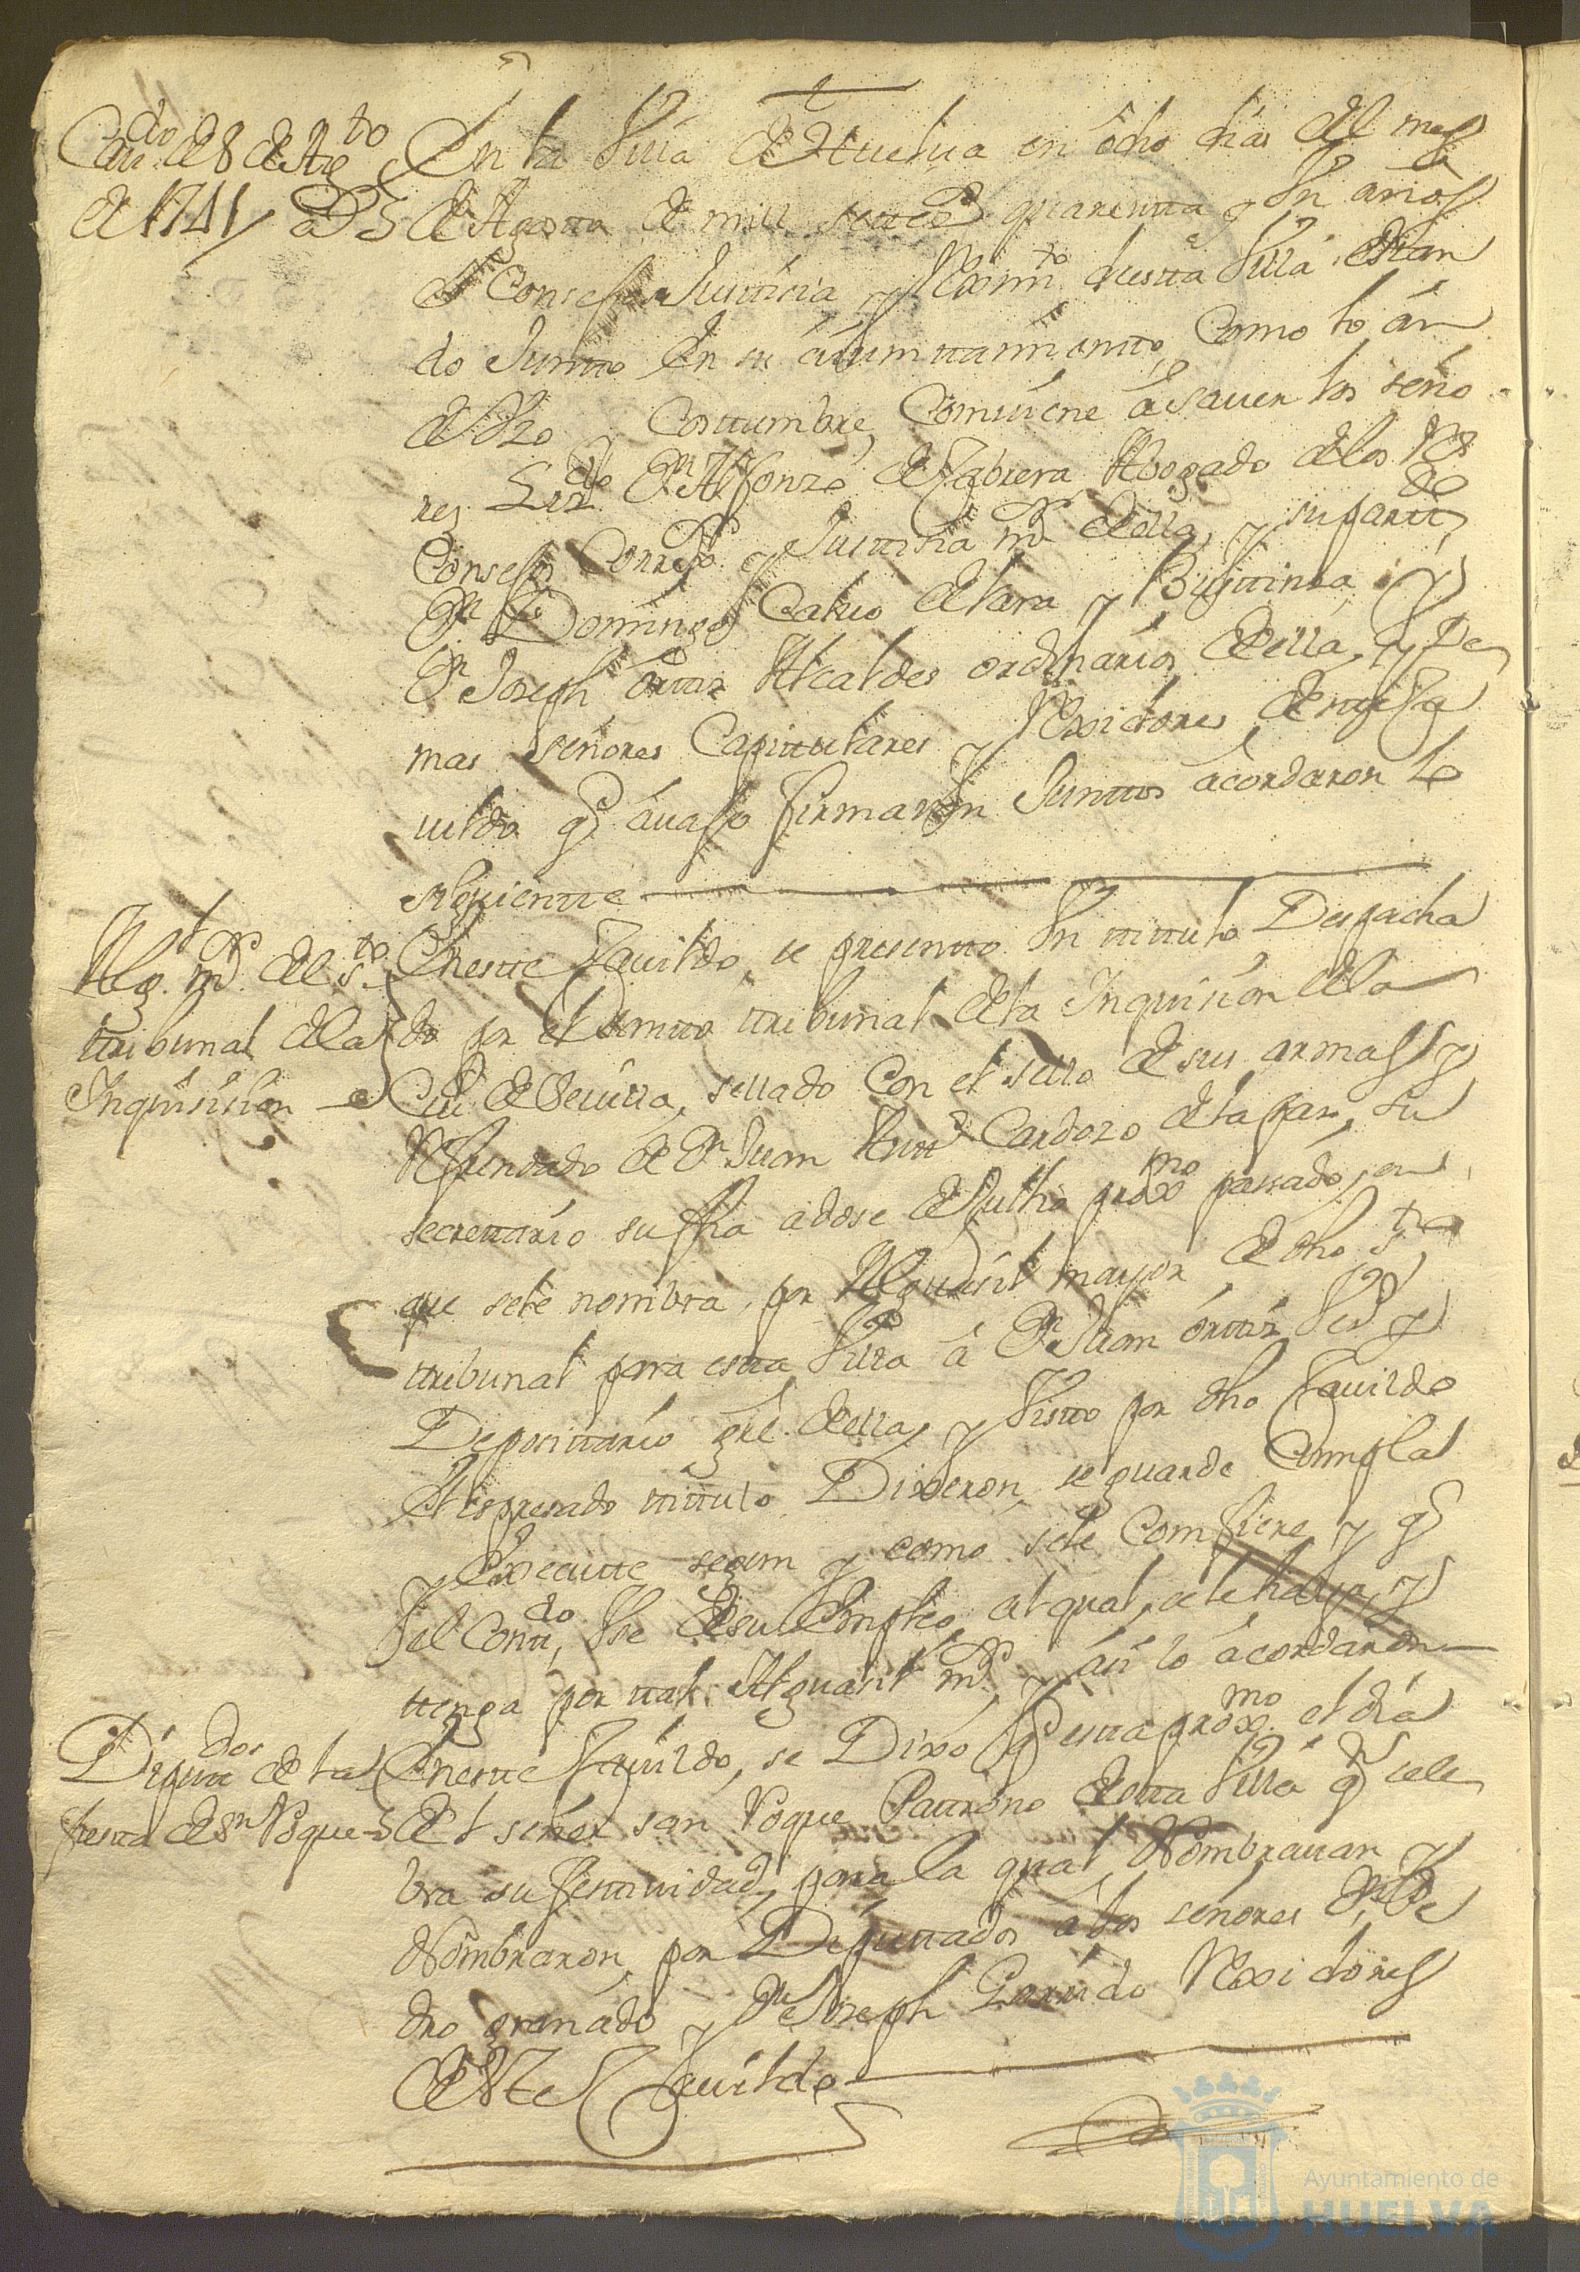 Cau.do de 8 de Ag.to
de 1741 a.s
En la Villa de Huelua en ocho dias del mes
de Agosto de mill settec.s quarentta y Un años
el Consejo Justticia y Rexim.to desta Villa estan
do Juntto en su aiunttamientto Como lo án
de Vzo Costtumbre, Comuiene á sauer los seño
res Liz.do D.n Alfonzo de Cabrera Abogado de los R.s
Consejos Correx.or y Justticia m.or della, y su partt.do
D.n Domingo Caluo de lara y Buittrica, y
D.n Joseph órttiz Alcaldes ordinarios della, y De
mas señores Capittulares y Rexidores de estte Ca
uildo q.e áuajo firmaron Junttos acordaron lo
siguientte
Alg.l m.or del s.to
tribunal de la
Inquisision
En estte Cauildo se presentto Un tittulo Despacha
do por el Santto ttribunal de la Inquision de la
Ciu.d de Seuilla, sellado Con el sello de sus armas y
Refrendado de D.n Juan Antt.o Cardozo de la paz, su
secrettario su fha a dose de Julio prox.mo passado, en
que sele nombra, por Alguasil mayor de dho S.to
ttribunal para estta Villa á D.n Juan órttiz Uez.o y
Deposittario gral. della, y Vistto por dho Cauildo
el espresado tittulo Dixeron, se guarde Cumpla
y Execute segun y como sele Comfiere, y q.e
el Contt.do Vse de su Empleo, al qual, se le haya, y
ttenga por ttal Alguasil m.or, y ási lo ácordaron
Diputt.dos de la
fiestta de S.n Roque
En estte Cauildo, se Dixo q.e estta prox.mo el dia
de el señor san Roque Pattrono de estta Villa q.e sele
bra su festtiuidad, para la qual, Nombrauan y
Nombraron, por Diputtados á los señores D.n Pe
dro granado y D.n Joseph Garrido Rexidores
de este Cauildo
Ayuntamiento de
HUELVA